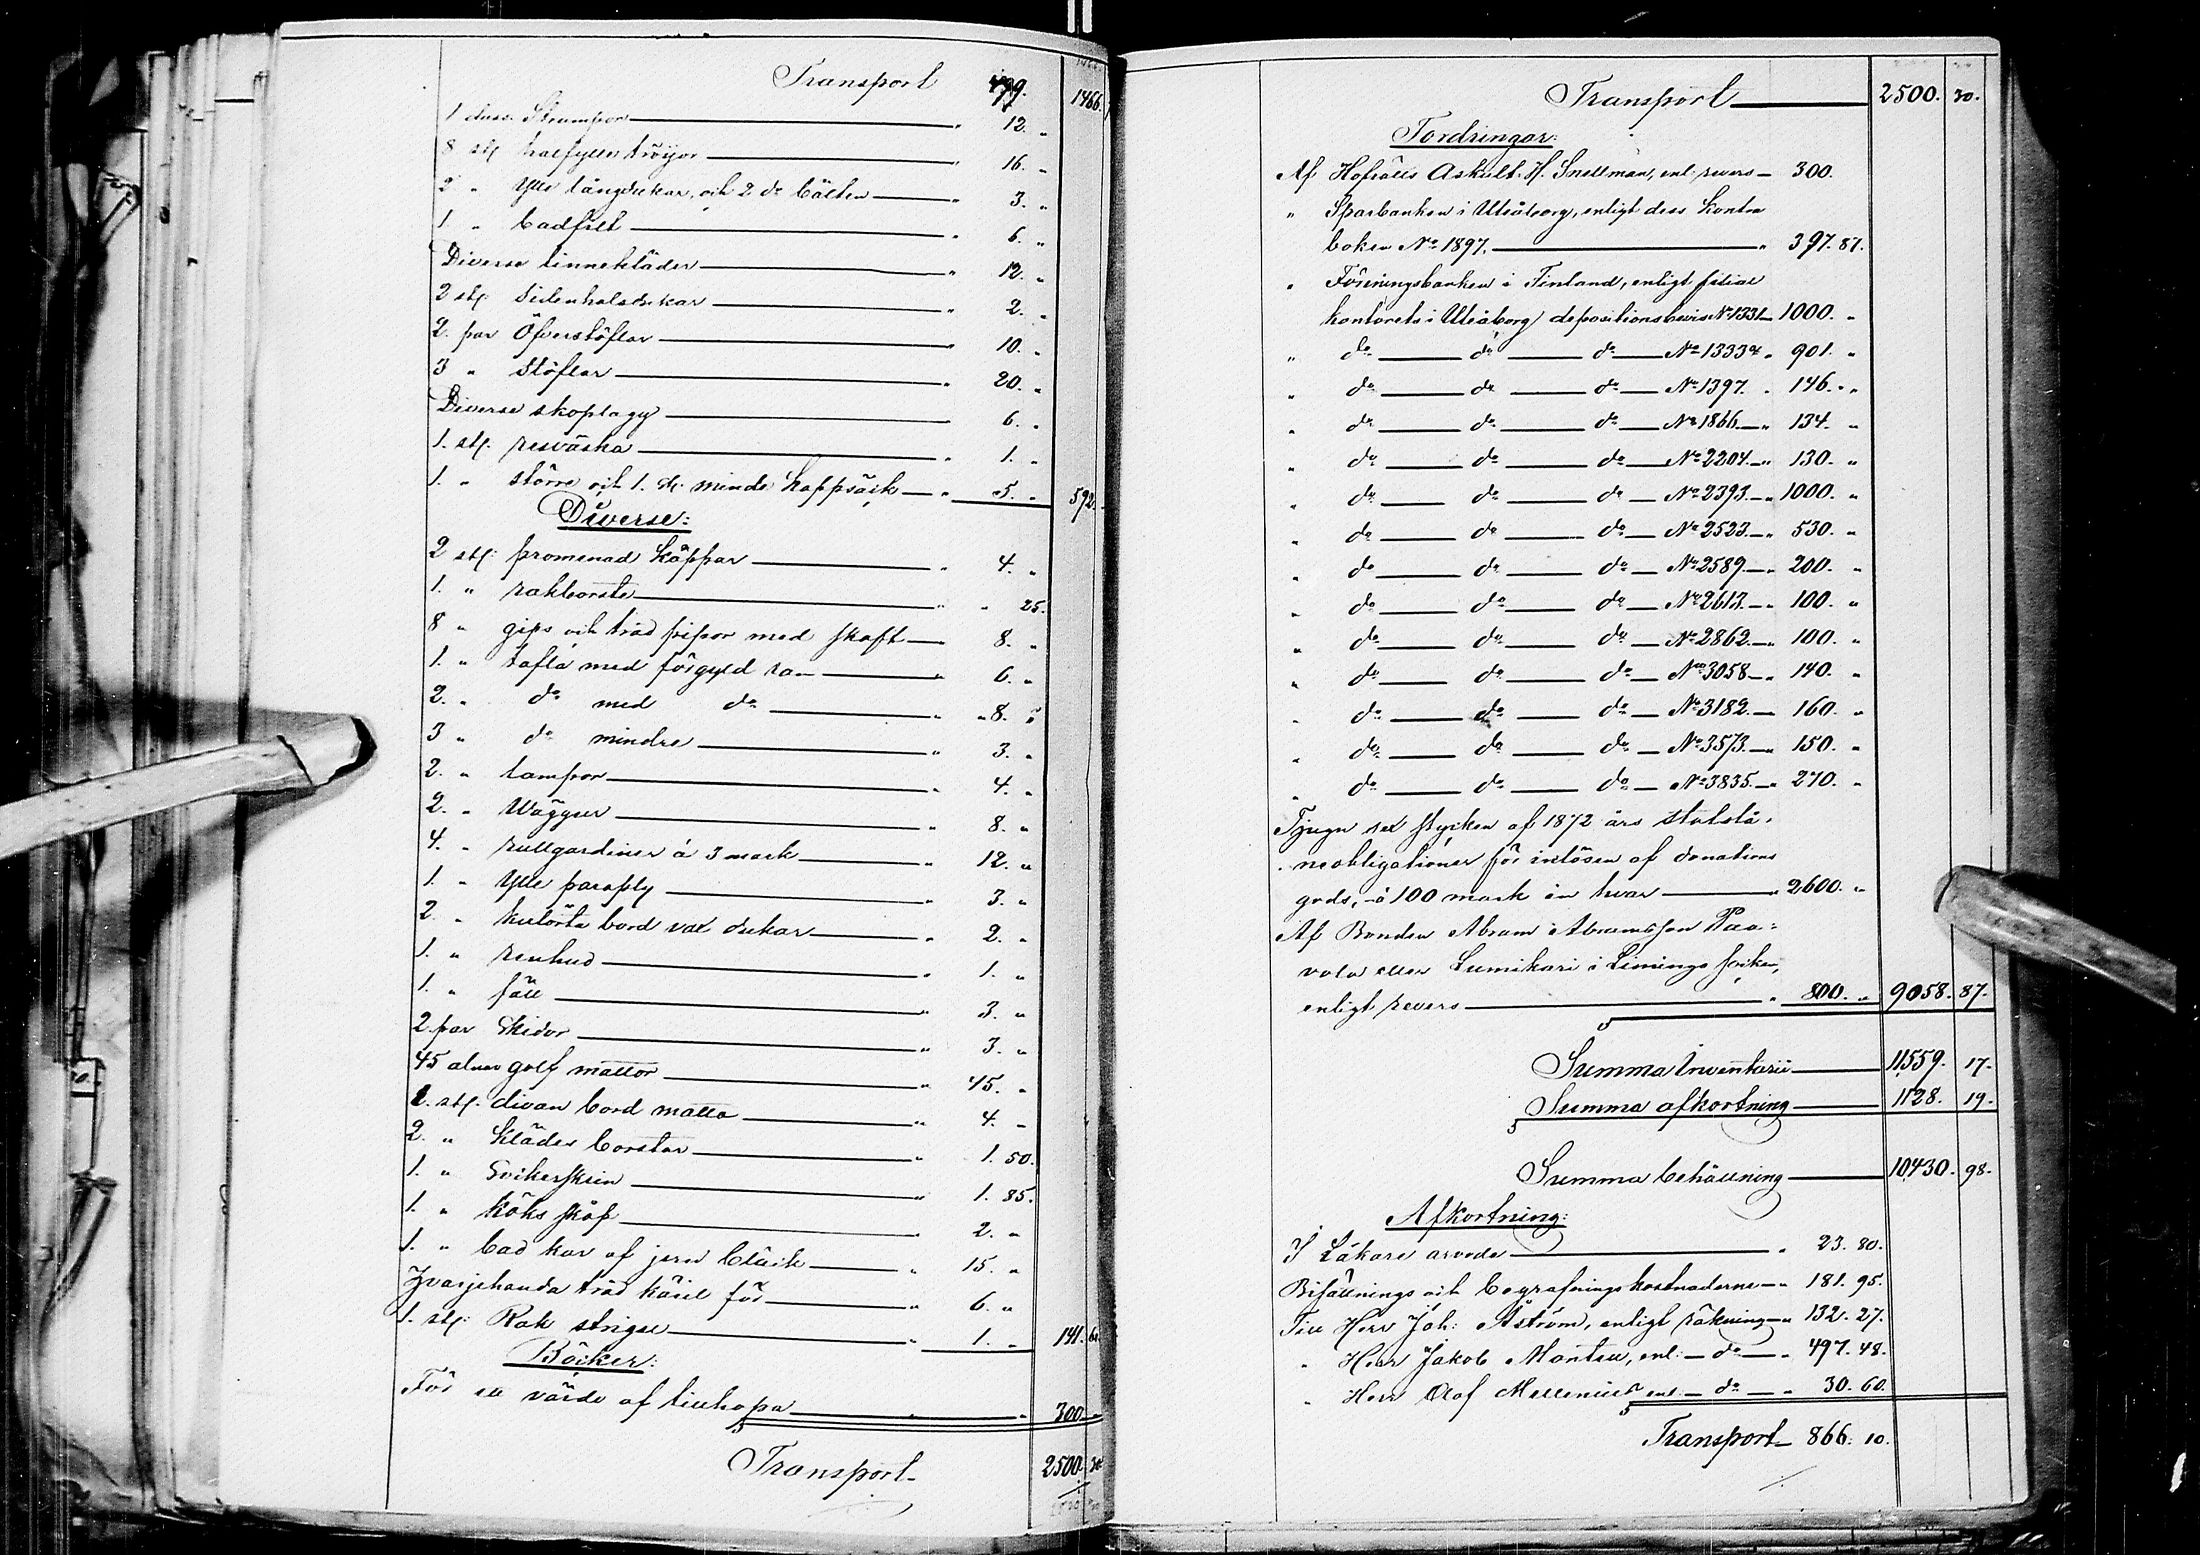 Transport 499. 1466.
1 duss. Strumpor " 12. "
8 st: halfylle tröjor " 16. "
2 " Ylle långdukar, och 2 do bälten " 3. "
1. " badfilt " 6. "
Diverse linnekläder " 12. "
2 st: Sidenhalsdukar " 2. "
2. par Öfverstöflar " 10. "
3 " Stöflar " 20. "
Diverse skoplagg " 6. "
1. st. resväska " 1. "
1. " större och 1. st. mindre kappsäck " 5. " 592.
Diverse:
2 st: promenad käppar " 4. "
1. " rakborste " " 25.
8 " gips och träd pipor med skaft " 8. "
1. " tafla med förgyld ram " 6. "
2. " do med do " 8. "
3 " do mindre " 3. "
2. " lampor " 4. "
2. " Väggur " 8. "
4. " rullgardiner á 3 mark " 12. "
1. " Ylle paraply " 3. "
2. " kulörta bord vax dukar " 2. "
1. " renhud " 1. "
1. " fäll " 3. "
2. par Skidor " 3. "
45 alnar golf mattor " 45. "
1. st. divan bord matta " 4. "
2. " Kläder borstar " 1. 50.
1. " Sockerskrin " 1. 85.
1. " Köks skåp " 2. "
1. " bad kar af jern bläck " 15. "
Hvarjehanda träd käril för " 6. "
1. st: Rak strigel " 1. " 141. 60
Böcker:
För ett värde af tillhopa " 300. "
Transport 2500. 30
Transport 2500. 30.
Fordringar:
Af Hofrätts Auskult. H. Snellman, enl. revers 300.
" Sparbanken i Uleåborg, enligt dess Kontra
boken No 1897. " 397. 87.
" Föreningsbanken i Finland, enligt filial
kontorets i Uleåborg depositionsbevis No 1331 1000. "
" do do do No 1333 " 901. "
" do do do No 1397. " 146. "
" do do do No 1866 " 134. "
" do do do No 2204. " 130. "
" do do do No 2393. " 1000. "
" do do do No 2523. " 530. "
" do do do No 2589. " 200. "
" do do do No 2613. " 100. "
" do do do No 2862. " 100. "
" do do do No 3058 " 140. "
" do do do No 3182. 160. "
" do do do No 3573. " 150. "
" do do do No 3835. " 270. "
Tjugu sex stycken af 1872 års statslå-
neobligationer för inlösen af donations
gods, á 100 mark en hvar " 2600. "
Af Bonden Abram Abramsson Paa-
vola eller Lumikari i Limingo socken,
enligt revers " 800. " 9058. 87.
Summa Inventarii 11559. 17.
Summa afkortning 1128. 19.
Summa behållning 10430. 98.
Afkortning:
I Läkare arvode " 23. 80.
Bisättnings och begrafnings kostnaderne " 181. 95.
Till Herr Joh: Åström, enligt räkning " 132. 27.
" Herr Jakob Montell, enl: do " 497. 48.
" Herr Olof Mellenius enl: do " 30. 60.
Transport 866. 10.